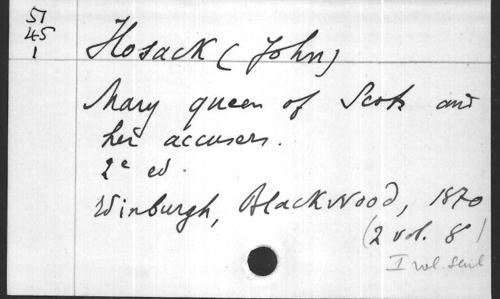 51
45
1
Hosack (John)
Mary queen of Scots and
her accusers.
2e ed.
Edinburgh, Blackwood, 1870
(2 vol. 8°)
I vol. seul